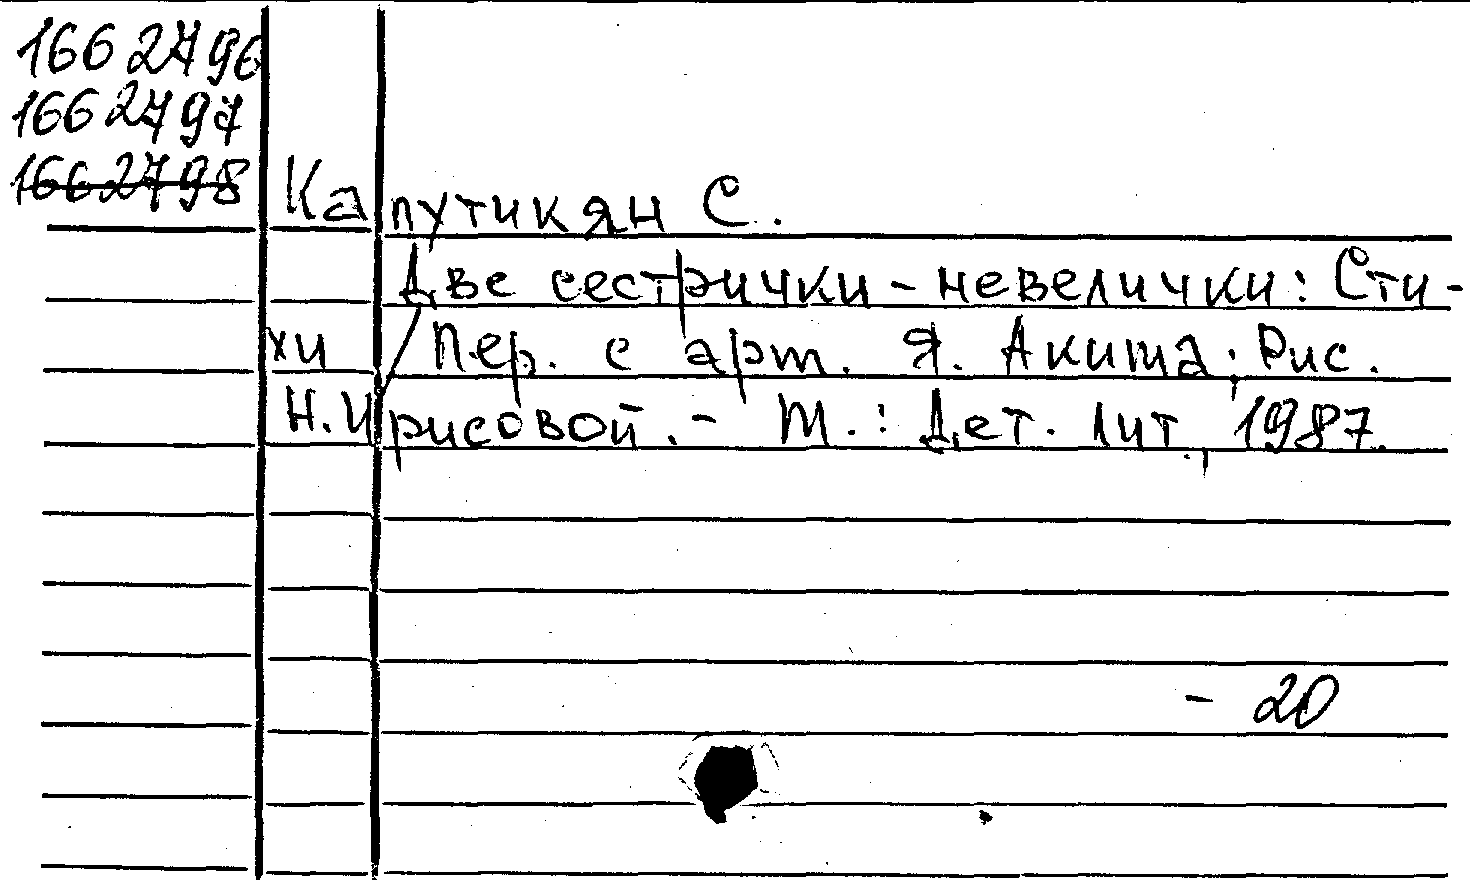 1662796
1662797
1662798
Капутикян С.
Две сестрички-невелички: Сти-
хи / Пер. с арм. Я. Акима; Рис.
Н. Ирисовой. - М.: Дет. лит., 1987.
- 20